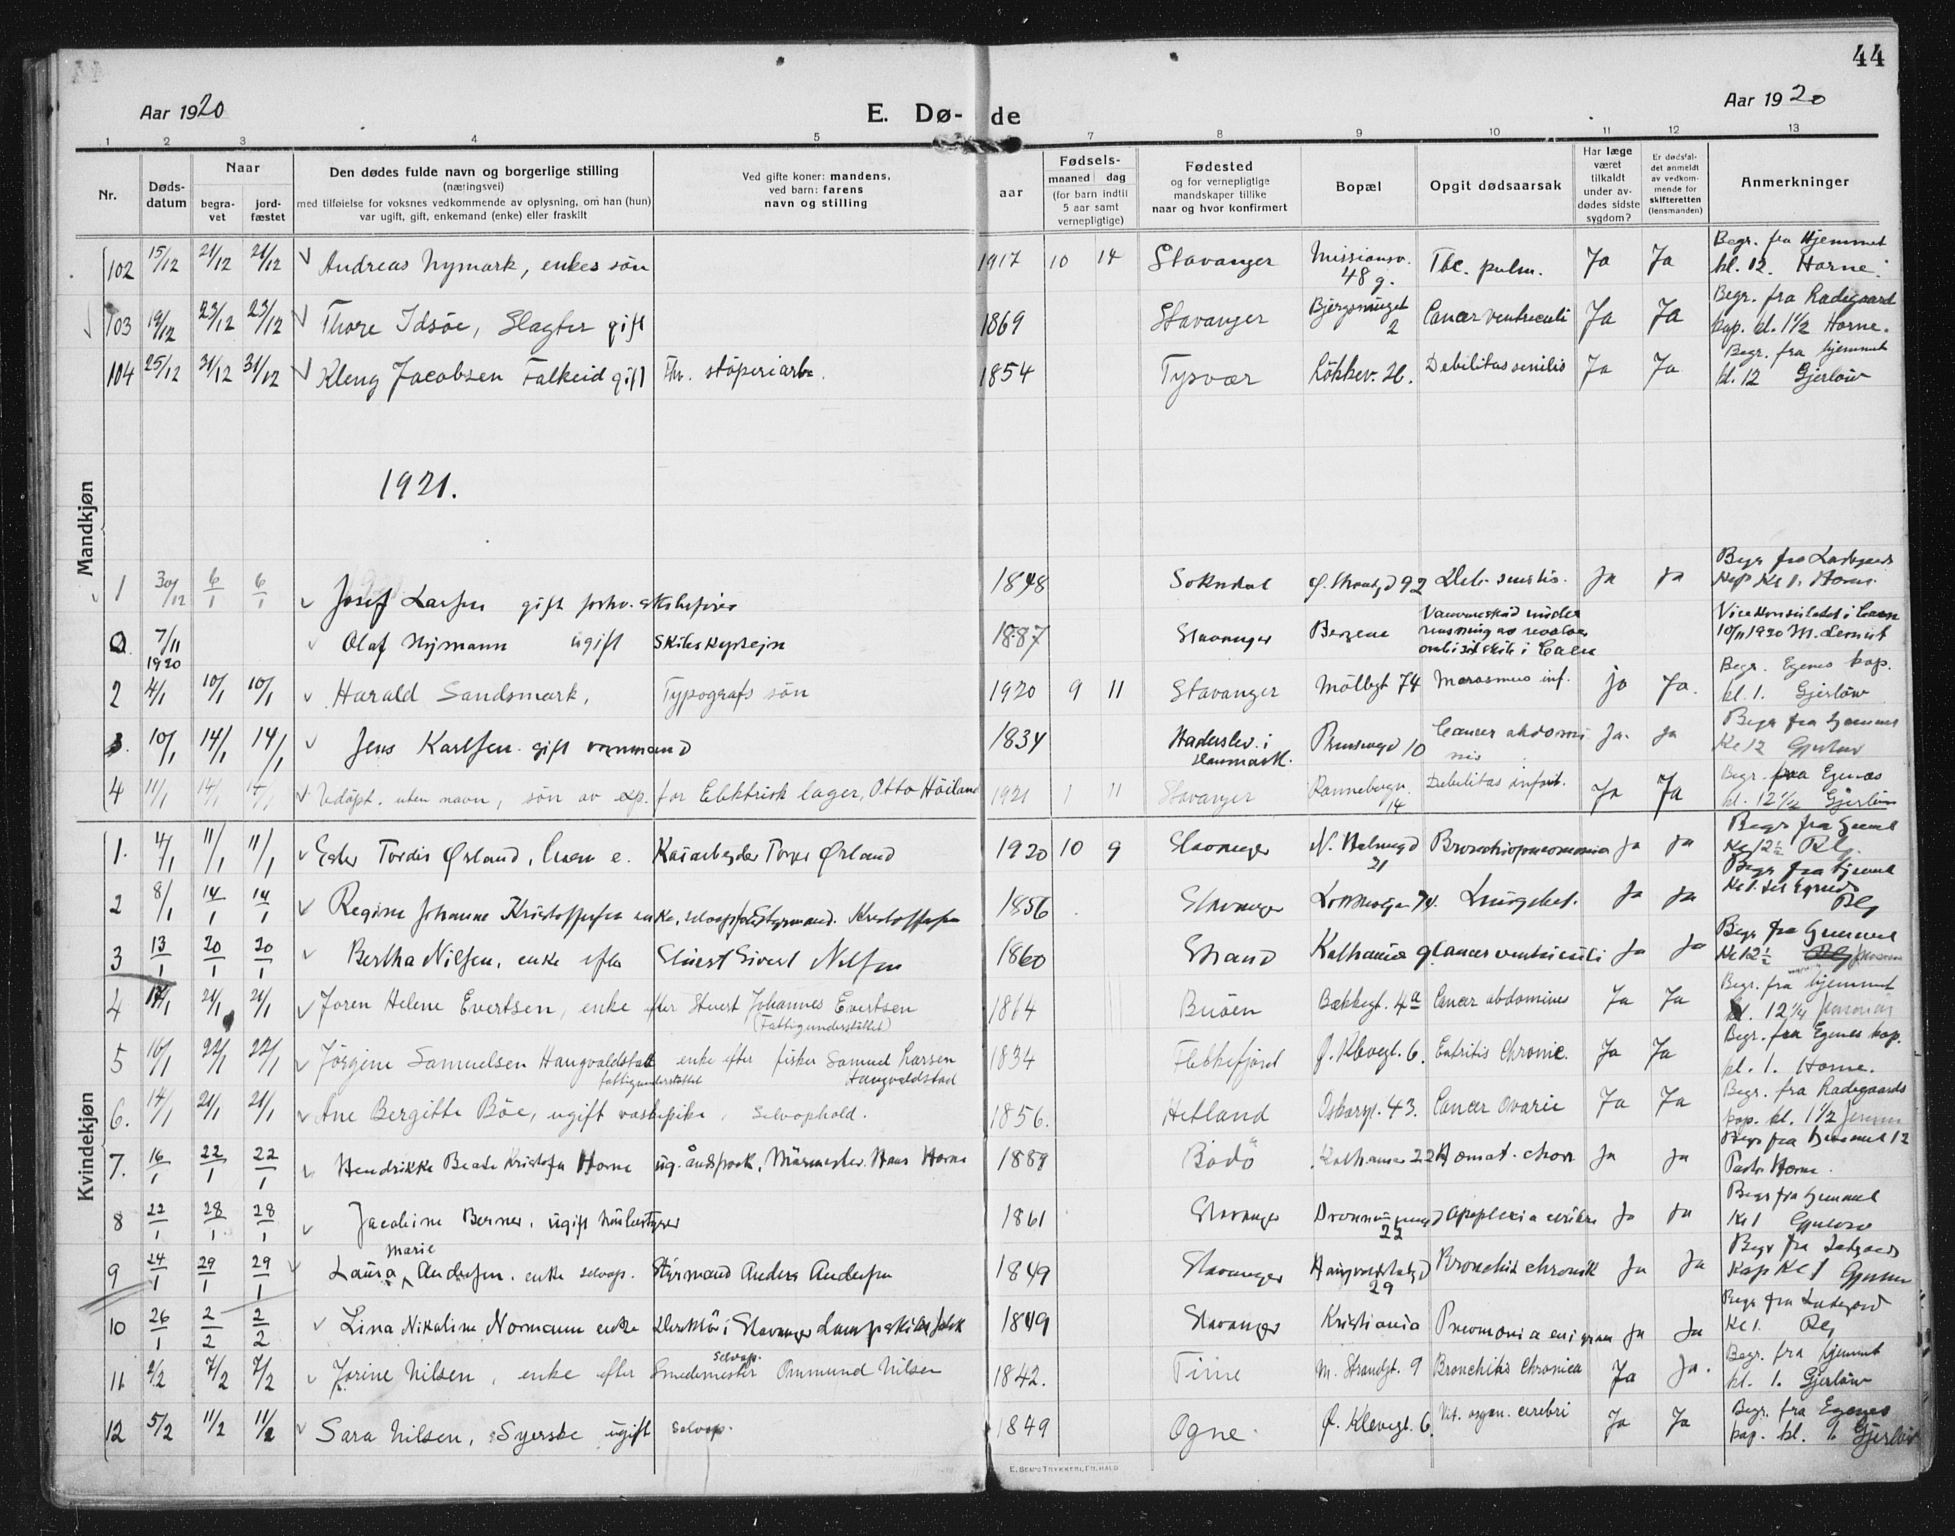 44
Aar 1920
E. Dø- de
Aar 1920
1 2 3 4 5 7 8 9 10 11 12 13
Nr.
Døds-datum
Naar
begra-vet
jord-fæstet
Den dødes fulde navn og borgerlige stilling
(næringsvei)
med tilføielse for voksnes vedkommende av oplysning, om han (hun)
var ugift, gift, enkemand (enke) eller fraskilt
Ved gifte koner: mandens,
ved barn: farens
navn og stilling
aar
Fødsels-
maaned dag
(for barn indtil
5 aar samt
vernepligtige)
Fødested
og for vernepligtige
mandskaper tillike
naar og hvor konfirmert
Bopæl
Opgit dødsaarsak
Har læge
været
tilkaldt
under av-
dødes sidste
sygdom?
Er dødsfal-
det anmeldt
av vedkom-
mende for
skifteretten
(lensmanden)
Anmerkninger
Mandkjøn
102 15/12 21/12 21/12 Andreas Nymark, enkes søn 1917 10 14 Stavanger Missionsv. 48 g. Tbc. pulm. Ja Ja Begr. fra Hjemmet kl. 12. Horne.
103 19/12 23/12 23/12 Thore Idsøe, Slagter gift 1869 Stavanger Bjergsmuget 2 Cancer ventriculi Ja Ja Begr. fra Ladegaard kap. kl. 1 1/2 Horne.
104 25/12 31/12 31/12 Kleng Jacobsen Falkeid gift Fhv. støperiarb. 1854 Tysvær Løkkev. 26. Debilitas senilis Ja Ja Begr. fra hjemmet kl. 12 Gjerløw
1921.
1 30/12 6/1 6/1 Josef Larsen gift forhv. skibsfører 1848 Sokndal Ø. Strandgd 92 Deb. senilis. Ja Ja Begr fra Ladegaards Kap Kl 1. Horne.
7/11 1920 Olaf Nymann ugift Skibskaptejn 1887 Stavanger Bergene
2 4/1 10/1 10/1 Harald Sandsmark, Typografs søn 1920 9 11 Stavanger Møllegt 74 Marasmus inf. Ja Ja. Begr. Egenes kap. kl. 1. Gjerløw
3. 10/1 14/1 14/1 Jens Karlsen gift vognmand 1834 Haderslev i Danmark. 10 Cancer abdominis Ja. Ja Begr fra Hjemmet Kl 12 Gjerløw
4 11/1 14/1 14/1 Udøpt. uten navn, søn av exp. for Elektrisk lager, Otto Høiland 1921 1 11 Stavanger Rannebergn. 14 Debilitas infant. Ja Ja Begr. fra Egenæs kl. 12 1/2 Gjerløw
Kvindekjøn
1. 4/1 11/1 11/1 Ester Tordis Ørland, Kaiarbejder Torger Ørland 1920 10 9 Stavanger 21 Bronchiopneomonia Ja Ja Begr fra Hjemmet Kl 12 1/2 Rlg.
2 8/1 14/1 14/1 Regine Johanne Kristoffersen enke, Styrmand. Kristoffersen 1856 Stavanger 74. Ja Ja
3 13/1 20/1 20/1 Bertha Nilsen, enke efter Sivert Nilsen 1860 Strand Cancer ventriculi Ja Ja Begr fra Hjemmet Kl 12 1/2
4 17/1 21/1 21/1 Joren Helene Evertsen, enke efter Stuert Johannes Evertsen (Fattigunderstøttet) 1864 Buøen Bækkegt. 4a Cancer abdominis Ja Ja Begr. fra hjemmet kl. 12 1/4
5 16/1 22/1 22/1 Jørgine Samuelsen Haugvaldstad enke efter fisker Samuel Larsen Haugvaldstad fattigunderstøttet 1834 Flekkefjord Ø. Klevegt. 6. Entritis Chronic. Ja Ja Begr. fra Egenes kap. kl. 1. Horne.
6. 14/1 21/1 21/1 Ane Bergitte Bøe, ugift vaskepike, selvophold. 1856. Hetland 43. Cancer Ovarie Ja Ja Begr. fra Ladegaards kap. kl. 1 1/2
7. 16/1 22/1 22/1 Hendrikke Beate Kristofa Horne ug. åndssvak, Murmester Hans Horne 1889 Bodö 22 Ja Ja Begr fra Hjemmet 12 Pastr Horne.
8 22/1 28/1 28/1 Jacobine Berner, ugift 1861 Stavanger 22 Apoplexia Ja Ja Begr fra Hjemmet Kl 1 Gjerløw
9 24/1 29/1 29/1 Laura Marie Andersen. enke selvop. Styrmand Anders Andersen 1849 Stavanger 29 Bronchit chronik Ja Ja Begr fra Ladgaards Kap Kl 1 Gjerløw
10 26/1 2/2 2/2 Lina Nikoline Normann enke Direktör i Stavanger Dampskibs Selsk 1849 Stavanger Kristiania Pneomonia Ja Ja Begr fra Ladegård Kl 1. Rlg
11 2/2 7/2 7/2 Jorine Nilsen, enke efter Smedemester Ommund Nilsen selvop. 1842. Time M. Strandgt. 9 Bronchitis Chronica Ja Ja. Begr. fra hjemmet kl. 1. Gjerløw
12 5/2 11/2 11/2 Sara Nilsen, Syerske ugift selvop. 1849 Ogne. Ø. Klevegt. 6. Vit. organ. cerebri Ja Ja Begr. fra Egenes kap. kl. 1. Gjerløw
E. SEM'S TRYKKERI, FR.HALD